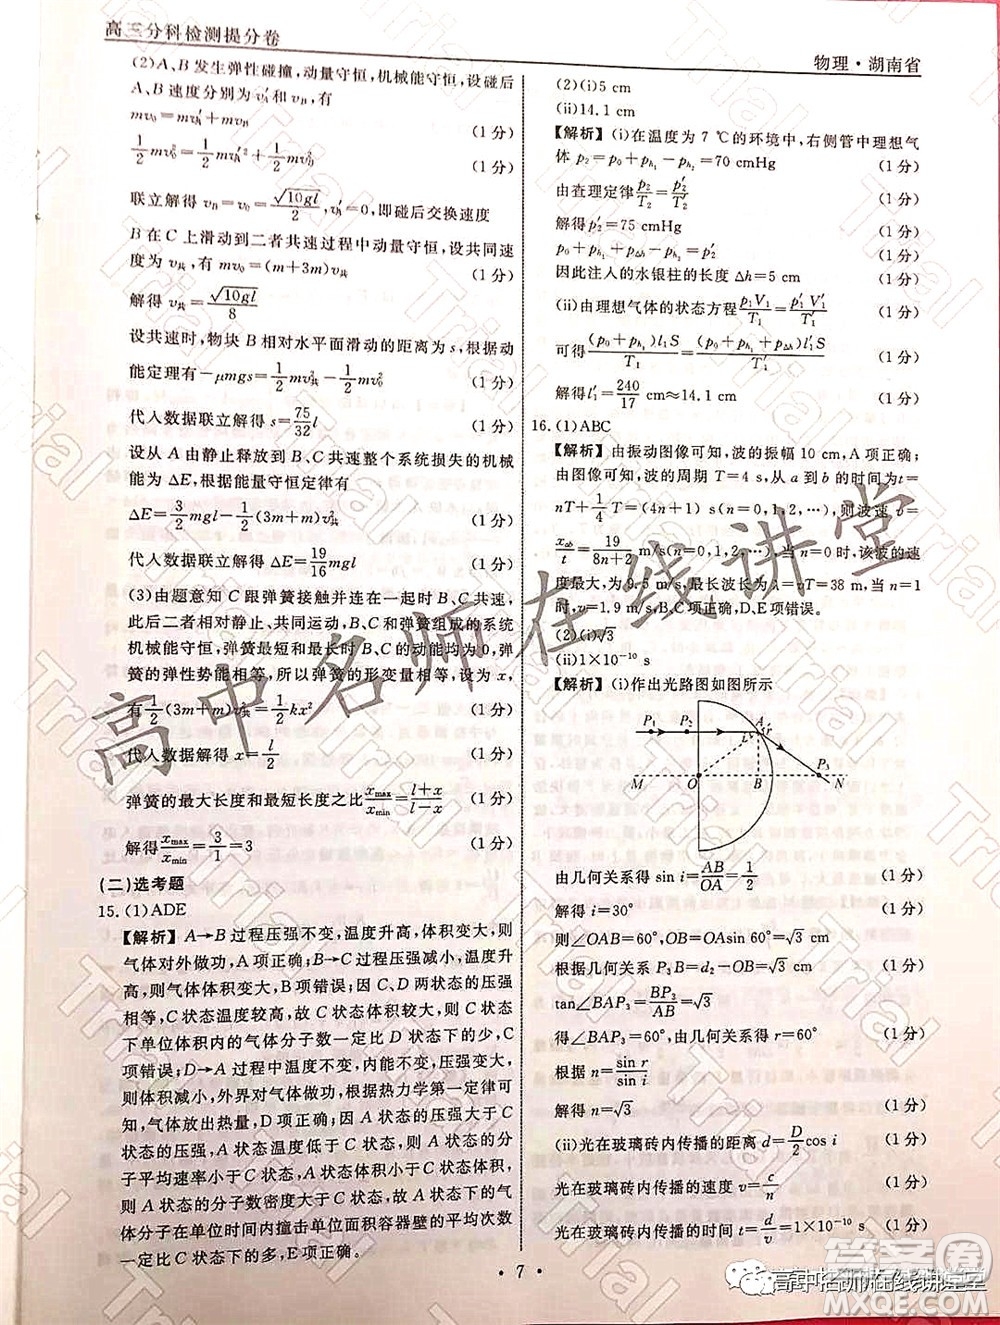 高三分科检测提分卷
物理·湖南省
(2)A、B发生弹性碰撞,动量守恒,机械能守恒,设碰后
A、B速度分别为v′A和vB,有
mv0=mv′A+mvB (1分)
1/2 mv0²=1/2 mv′A²+1/2 mvB² (1分)
联立解得vB=√(10gl)/2,v′A=0,即碰后交换速度
B在C上滑动到二者共速过程中动量守恒,设共同速
度为v共,有mv0=(m+3m)v共 (1分)
解得v共=√(10gl)/8 (1分)
设共速时,物块B相对水平面滑动的距离为s,根据动
能定理有-μmgs=1/2 mv共²-1/2 mv0² (1分)
代入数据联立解得s=75/32 l (1分)
设从A由静止释放到B、C共速整个系统损失的机械
能为ΔE,根据能量守恒定律有
ΔE=3/2 mgl-1/2(3m+m)v共² (1分)
代入数据联立解得ΔE=19/16 mgl (1分)
(3)由题意知C跟弹簧接触并连在一起时B、C共速,
此后二者相对静止、共同运动,B、C和弹簧组成的系统
机械能守恒,弹簧最短和最长时B、C的动能均为0,弹
簧的弹性势能相等,所以形变量相等,设为x,
有1/2(3m+m)v共²=1/2 kx² (1分)
代入数据解得x=l/2 (1分)
弹簧的最大长度和最短长度之比xmax/xmin=(l+x)/(l-x) (1分)
解得xmax/xmin=3/1=3 (1分)
(二)选考题
15.(1)ADE
【解析】A→B过程压强不变,温度升高,体积变大,
气体对外做功,A项正确;B→C过程压强减小,温度升
高,则气体体积变大,B项错误;C状态下的体积大于
D状态下的体积,故C状态下
单位体积内的气体分子数一定比D状态下的少,C项
错误;D→A过程温度不变,内能不变,压强变大,
体积变小,外界对气体做功,根据热力学第一定律可
知,气体向外界放出热量,D项正确;A状态的压强大
于C状态,A状态的温度低于C状态,A状态的分子
平均速率小于C状态,A状态的体积小于C状态,
则A状态的分子数密度大于C状态,则A状态下的气
体分子在单位时间内撞击单位面积容器壁的平均次数
一定比C状态下的多,E项正确。
(2)(i)5 cm
(ii)14.1 cm
【解析】(i)在温度为7 ℃的环境中,右侧管中理想气
体p2=p0+ph1-ph2=70 cmHg (1分)
由查理定律p2/T2=p′2/T′2 (1分)
解得p′2=75 cmHg (1分)
p0+ph1+pΔh=ph2+p′2 (1分)
因此注入的水银柱的长度Δh=5 cm (1分)
(ii)由理想气体的状态方程p1V1/T1=p′1V′1/T′1 (1分)
可得(p0+ph1)l1S/T1=(p0+ph1+pΔh)l′1S/T′1 (1分)
解得l′1=240/17 cm≈14.1 cm (1分)
16.(1)ABC
【解析】由振动图像可知,波的振幅10 cm,A项正确;
由图像可知,波的周期T=4 s,从a到b的时间为t=
nT+1/4 T=(4n+1) s(n=0,1,2,…),则波速v=
xab/t=19/(8n+2) m/s(n=0,1,2,…),当n=0时,该波的速
度最大,为9.5 m/s,最长波长为λ=vT=38 m,当n=1
时,v=1.9 m/s,B、C项正确,D、E项错误。
(2)(i)√3
(ii)1×10⁻¹⁰ s
【解析】(i)作出光路图如图所示
P1 P2 A i r P3 M O B N
由几何关系得sin i=AB/OA=1/2 (1分)
解得i=30° (1分)
则∠OAB=60°,OB=OAsin 60°=√3 cm (1分)
根据几何关系P3B=d2-OB=√3 cm (1分)
tan∠BAP3=BP3/AB=√3
得∠BAP3=60°,由几何关系得r=60° (1分)
根据n=sin r/sin i
解得n=√3 (1分)
(ii)光在玻璃砖内传播的距离d=D/2 cos i (1分)
光在玻璃砖内传播的速度v=c/n (1分)
光在玻璃砖内传播的时间t=d/v=1×10⁻¹⁰ s (1分)
·7·
高中名师在线讲堂
高中名师在线讲堂
答案圈
MXQE.COM
Trial